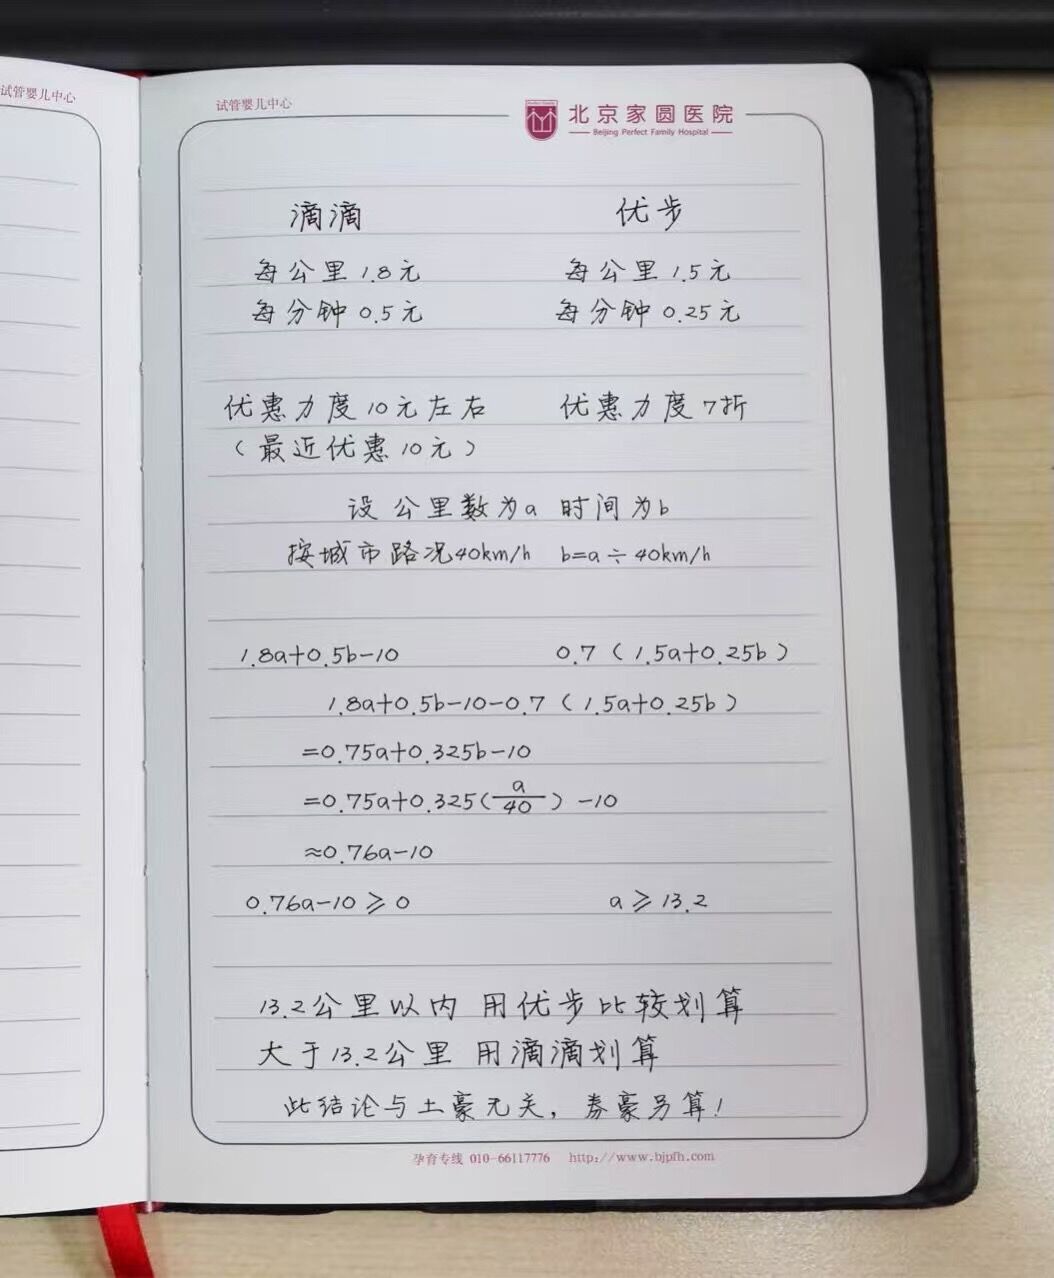 试管婴儿中心
试管婴儿中心
北京家圆医院
Beijing Perfect Family Hospital
滴滴 优步
每公里1.8元 每公里1.5元
每分钟0.5元 每分钟0.25元
优惠力度10元左右 优惠力度7折
(最近优惠10元)
设公里数为a 时间为b
按城市路况40km/h b=a÷40km/h
1.8a+0.5b-10 0.7(1.5a+0.25b)
1.8a+0.5b-10-0.7(1.5a+0.25b)
=0.75a+0.325b-10
=0.75a+0.325(a/40)-10
≈0.76a-10
0.76a-10≥0 a≥13.2
13.2公里以内 用优步比较划算
大于13.2公里 用滴滴划算
此结论与土豪无关，券豪另算!
孕育专线 010-66117776 http://www.bjpfh.com